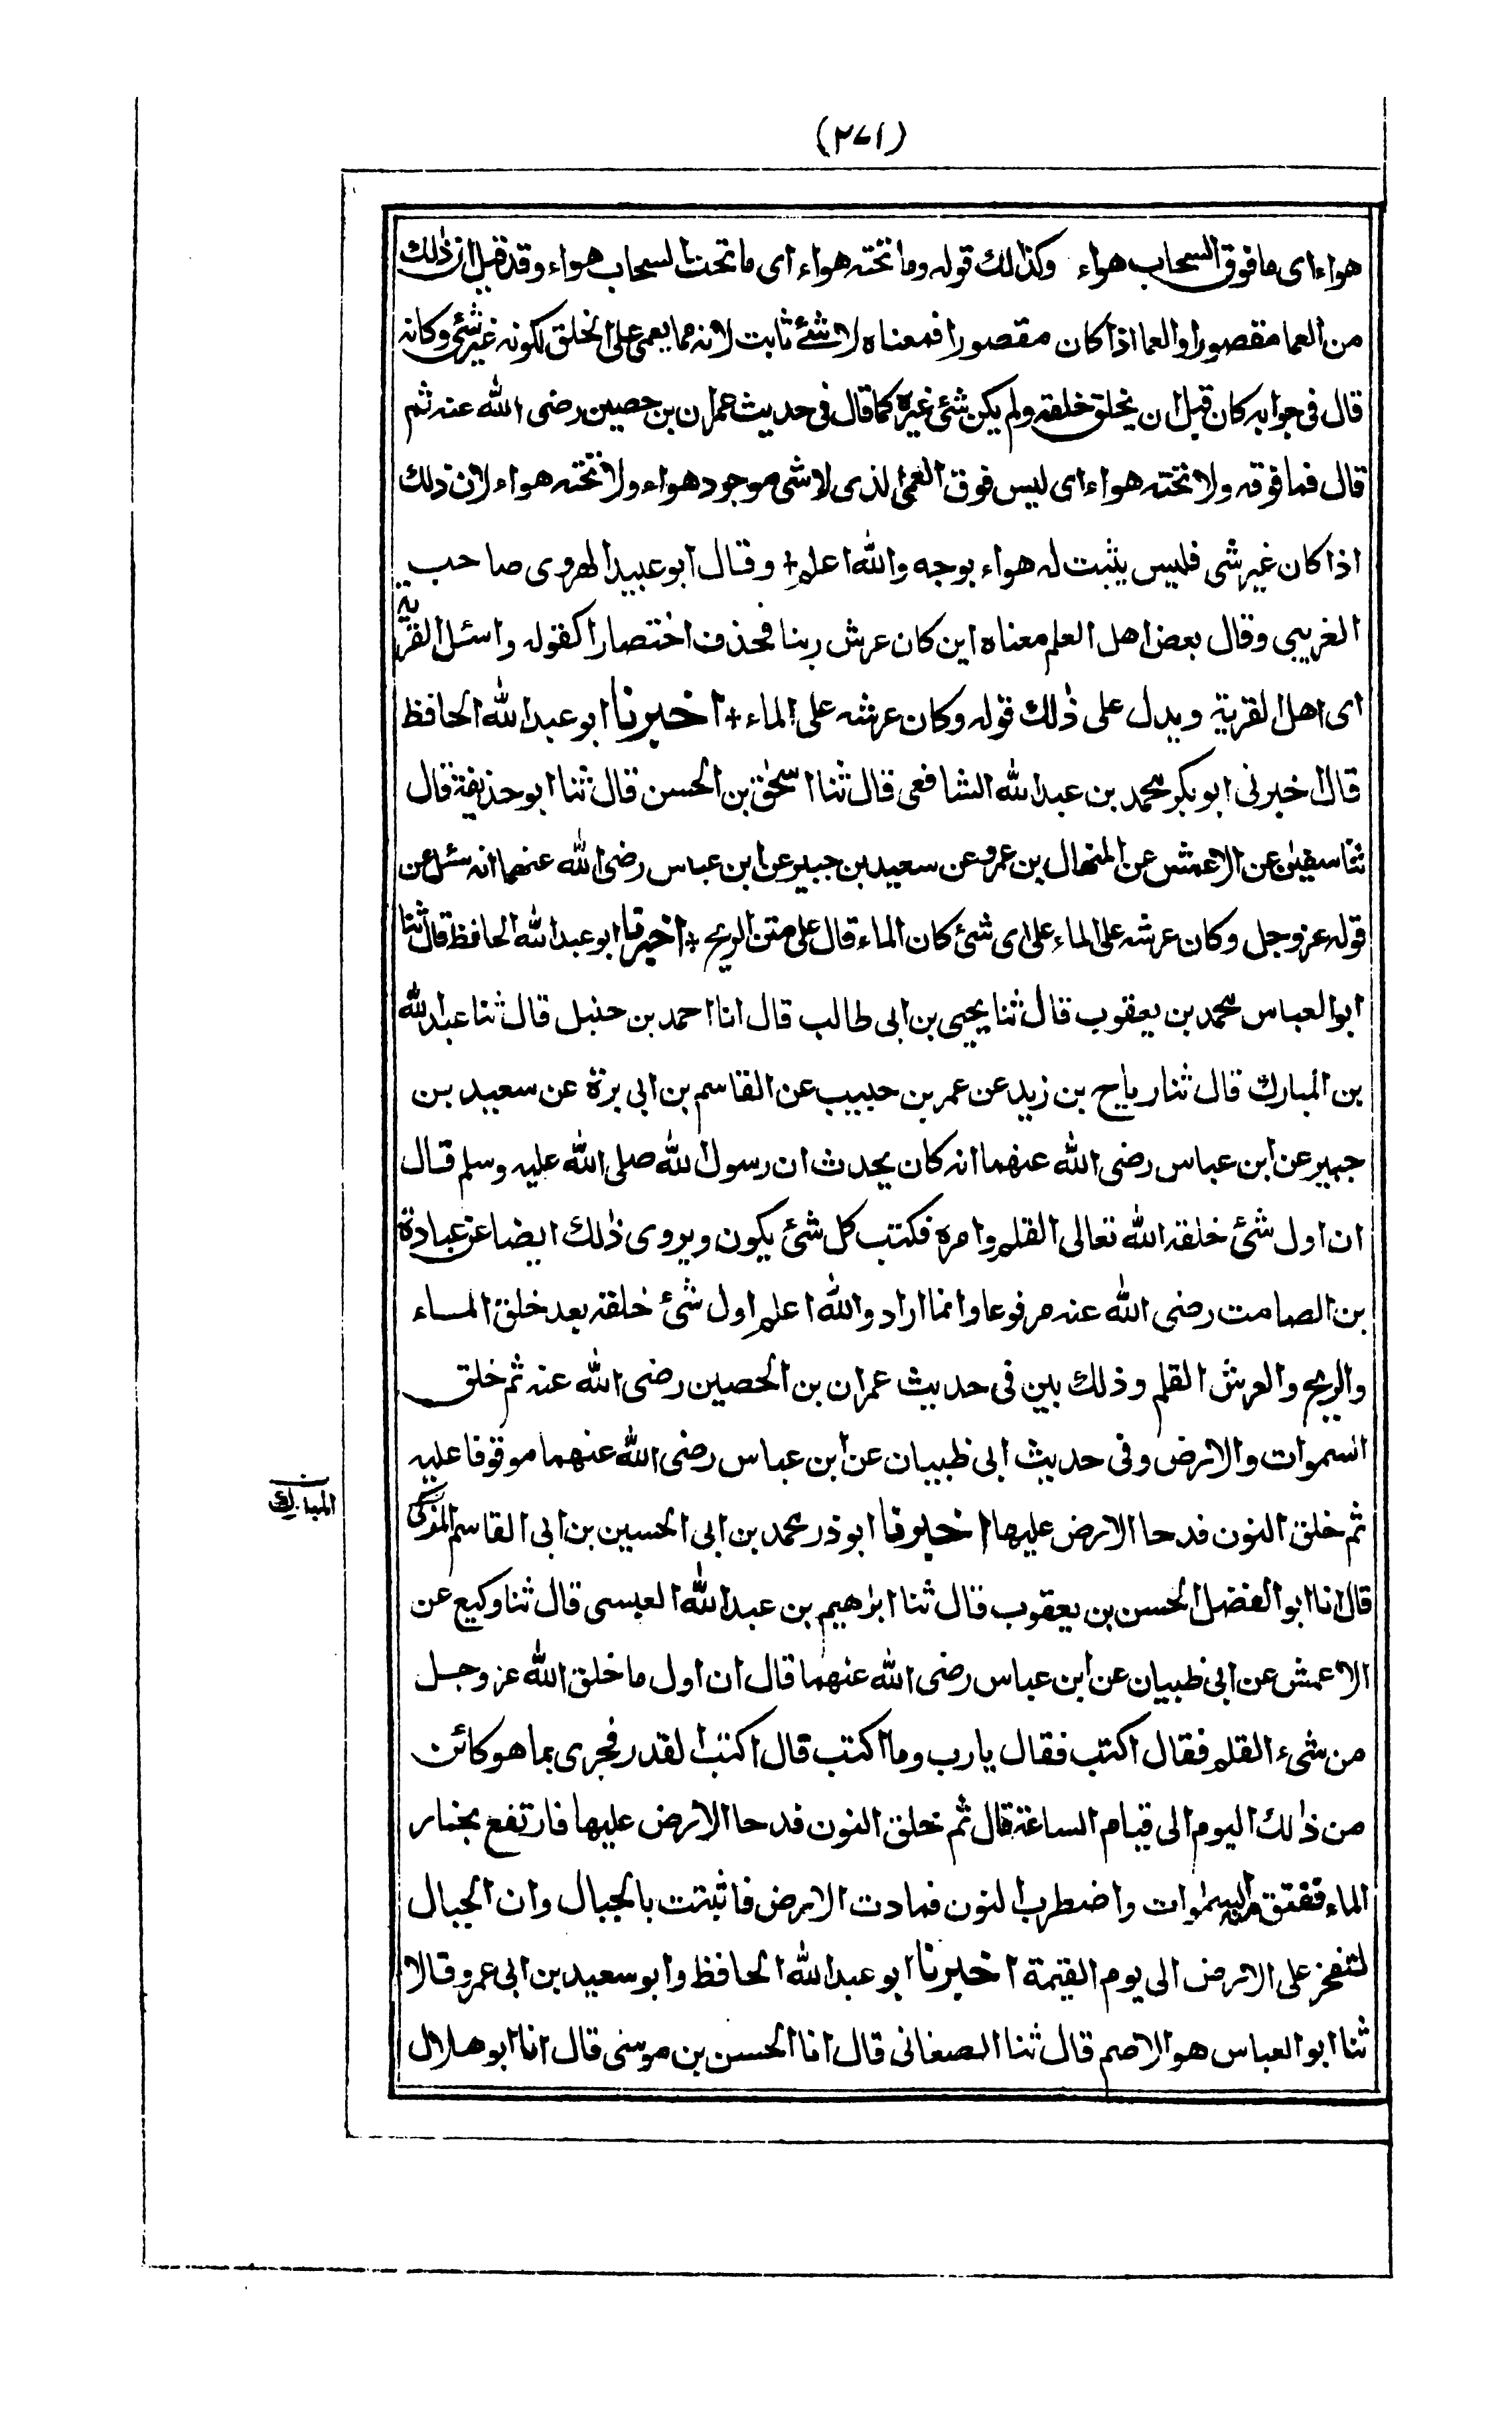 (٢٧١)
هواء اى ما فوق السحاب هواء وكذالك قوله وما تحته هواء اى ما تحت السحاب هواء وقد قيل ان ذلك
من العما مقصورا والعما اذا كان مقصورا فمعناه لا شئ ثابت لانه مما يعمى على الخلق لكونه غير شئ وكانه
قال فى جوابه كان قبل ان يخلق خلقه ولم يكن شئ غيره كما قال فى حديث عمران بن حصين رضى الله عنه ثم
قال فما فوقه ولا تحته هواء اى ليس فوق العمى الذى لا شى موجود هواء ولا تحته هواء لان ذلك
اذا كان غير شى فليس يثبت له هواء بوجه والله اعلم + وقال ابو عبيد الهروى صاحب
الغريبى وقال بعض اهل العلم معناه اين كان عرش ربنا فحذف اختصارا كقوله واسئل القرية
اى اهل القرية ويدل على ذلك قوله وكان عرشه على الماء + اخبرنا ابو عبد الله الحافظ
قال اخبرنى ابو بكر محمد بن عبد الله الشافعى قال ثنا اسحق بن الحسن قال ثنا ابو حذيفة قال
ثنا سفين عن الاعمش عن المنهال بن عمرو عن سعيد بن جبير عن ابن عباس رضى الله عنهما انه سئل عن
قوله عز وجل وكان عرشه على الماء على اى شئ كان الماء قال على متن الريح + اخبرنا ابو عبد الله الحافظ قال ثنا
ابو العباس محمد بن يعقوب قال ثنا يحيى بن ابى طالب قال انا احمد بن حنبل قال ثنا عبد الله
بن المبارك قال ثنا رياح بن زيد عن عمر بن حبيب عن القاسم بن ابى بزة عن سعيد بن
جبير عن ابن عباس رضى الله عنهما انه كان يحدث ان رسول الله صلى الله عليه وسلم قال
ان اول شئ خلقه الله تعالى القلم وامره فكتب كل شئ يكون ويروى ذلك ايضا عن عبادة
بن الصامت رضى الله عنه مرفوعا وانما اراد والله اعلم اول شئ خلقه بعد خلق الماء
والريح والعرش القلم وذلك بين فى حديث عمران بن الحصين رضى الله عنه ثم خلق
السموات والارض وفى حديث ابى ظبيان عن ابن عباس رضى الله عنهما موقوفا عليه
ثم خلق النون فدحا الارض عليها اخبرنا ابو ذر محمد بن ابى الحسين بن ابى القاسم المزكى
قال انا ابو الفضل الحسن بن يعقوب قال ثنا ابرهيم بن عبد الله العبسى قال ثنا وكيع عن
الاعمش عن ابى ظبيان عن ابن عباس رضى الله عنهما قال ان اول ما خلق الله عز وجل
من شىء القلم فقال اكتب فقال يا رب وما اكتب قال اكتب القدر فجرى بما هو كائن
من ذلك اليوم الى قيام الساعة قال ثم خلق النون فدحا الارض عليها فارتفع بخار
الماء ففتق منه السموات واضطرب النون فمادت الارض فاثبتت بالجبال وان الجبال
لتفخر على الارض الى يوم القيمة اخبرنا ابو عبد الله الحافظ وابو سعيد بن ابى عمرو قالا
ثنا ابو العباس هو الاصم قال ثنا الصغانى قال انا الحسن بن موسى قال انا ابو هلال